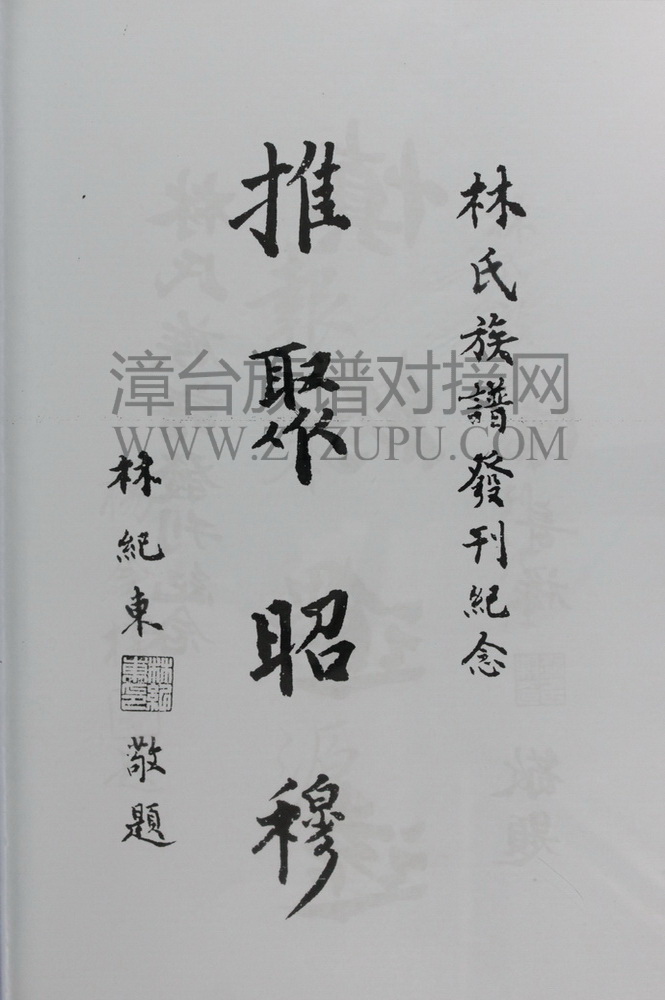 林氏族譜發刊紀念
推聚昭穆
林紀東
林紀東印
敬題
漳台族谱对接网
WWW.ZTZUPU.COM